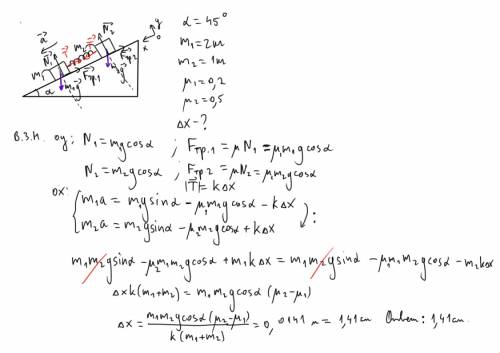 α = 45°
m₁ = 2м
m₂ = 1м
μ₁ = 0,2
μ₂ = 0,5
Δx - ?
a⃗ N⃗₁ T⃗ T⃗ m₂ N⃗₂ y 0 x
m₁ F⃗тр.1 F⃗тр.2 m₂g⃗
α m₁g⃗
В.З.Н. oy: N₁ = m₁g cosα ; Fтр.1 = μN₁ = μ₁m₁g cosα
N₂ = m₂g cosα ; Fтр.2 = μN₂ = μ₂m₂g cosα
|T⃗| = kΔx
ox: { m₁a = m₁g sinα - μ₁m₁g cosα - kΔx
m₂a = m₂g sinα - μ₂m₂g cosα + kΔx ) :
m₁m₂g sinα - μ₂m₁m₂g cosα + m₁kΔx = m₁m₂g sinα - μ₁m₁m₂g cosα - m₂kΔx
Δxk(m₁+m₂) = m₁m₂g cosα (μ₂-μ₁)
Δx = m₁m₂g cosα(μ₂-μ₁) / k(m₁+m₂) = 0,0141 м = 1,41 см Ответ: 1,41 см.